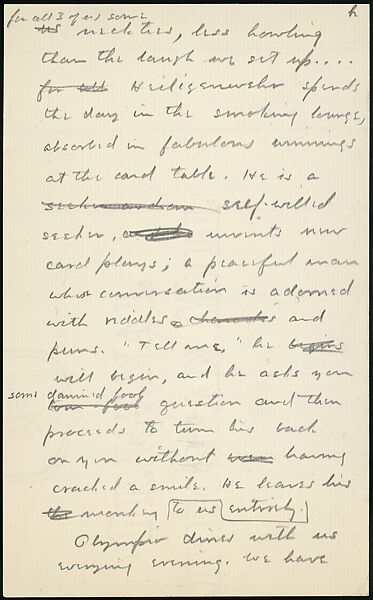 for all 3 of us some h
us neckties, less howling
than the laugh we set up....
for all Heiligenwehr spends
the day in the smoking lounge,
absorbed in fabulous winnings
at the card table. He is a
self-willed
seeker, invents new
card plays; a peaceful man
whose conversation is adorned
with riddles, and
puns. "Tell me," he begins
will begin, and he asks you
some damned fool
question and then
proceeds to turn his back
on you without having
cracked a smile. He leaves his
the monkey to us entirely.
Olympio dines with us
everying evening. We have